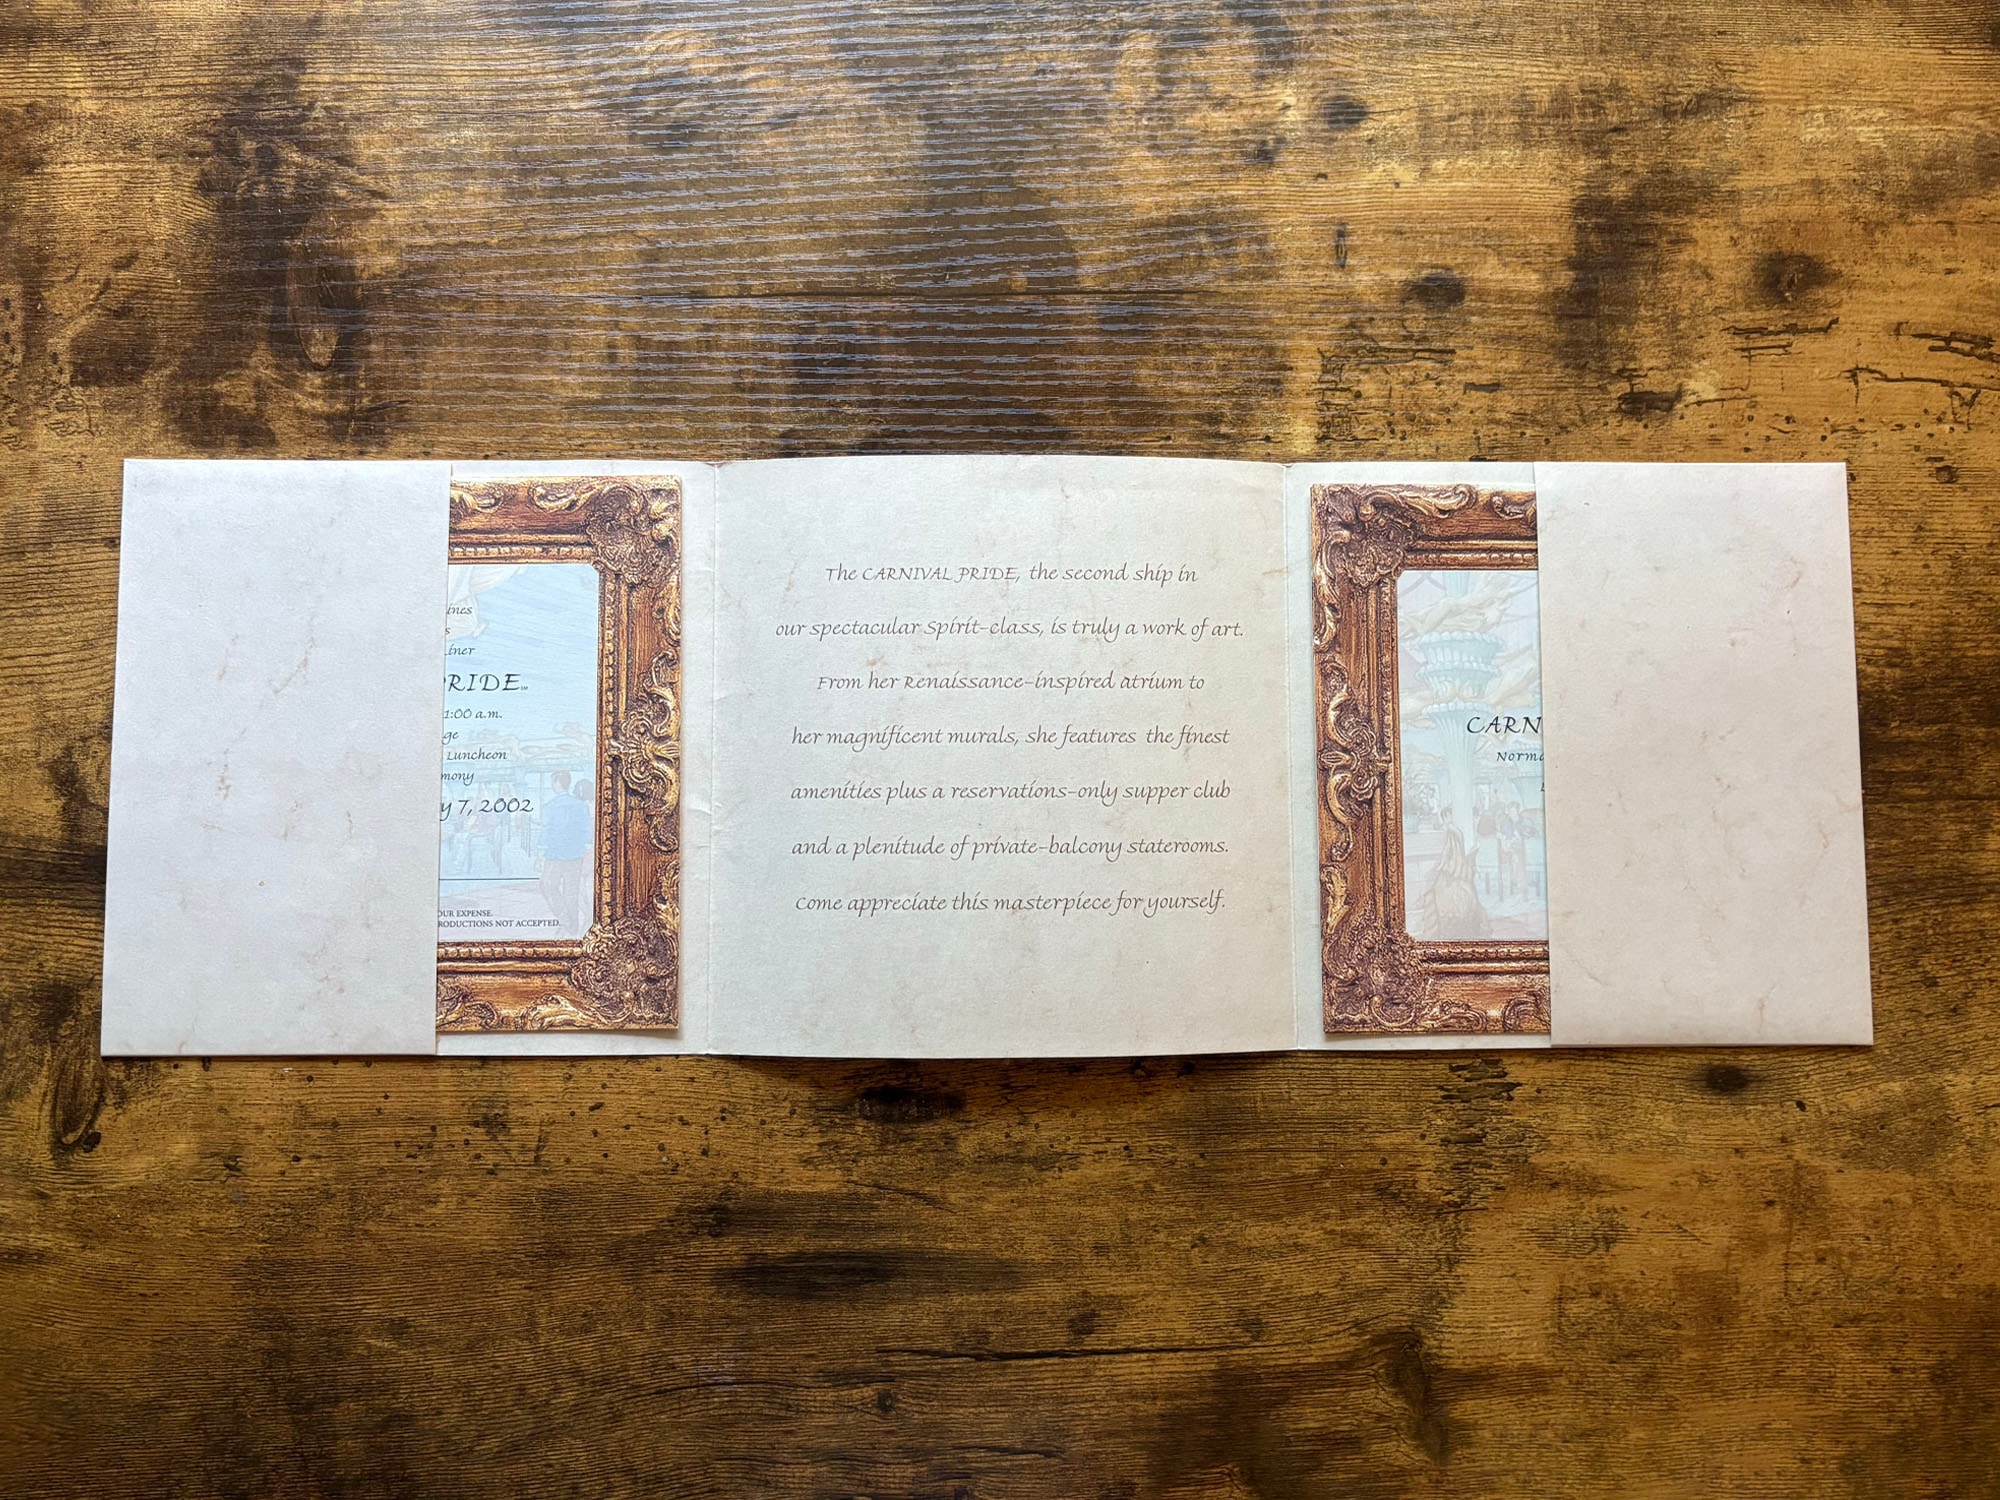 PRIDE
1:00 a.m.
Luncheon
7, 2002
OUR EXPENSE.
NOT ACCEPTED.
The CARNIVAL PRIDE, the second ship in
our spectacular Spirit-class, is truly a work of art.
From her Renaissance-inspired atrium to
her magnificent murals, she features the finest
amenities plus a reservations-only supper club
and a plenitude of private-balcony staterooms.
Come appreciate this masterpiece for yourself.
CARN
Norma